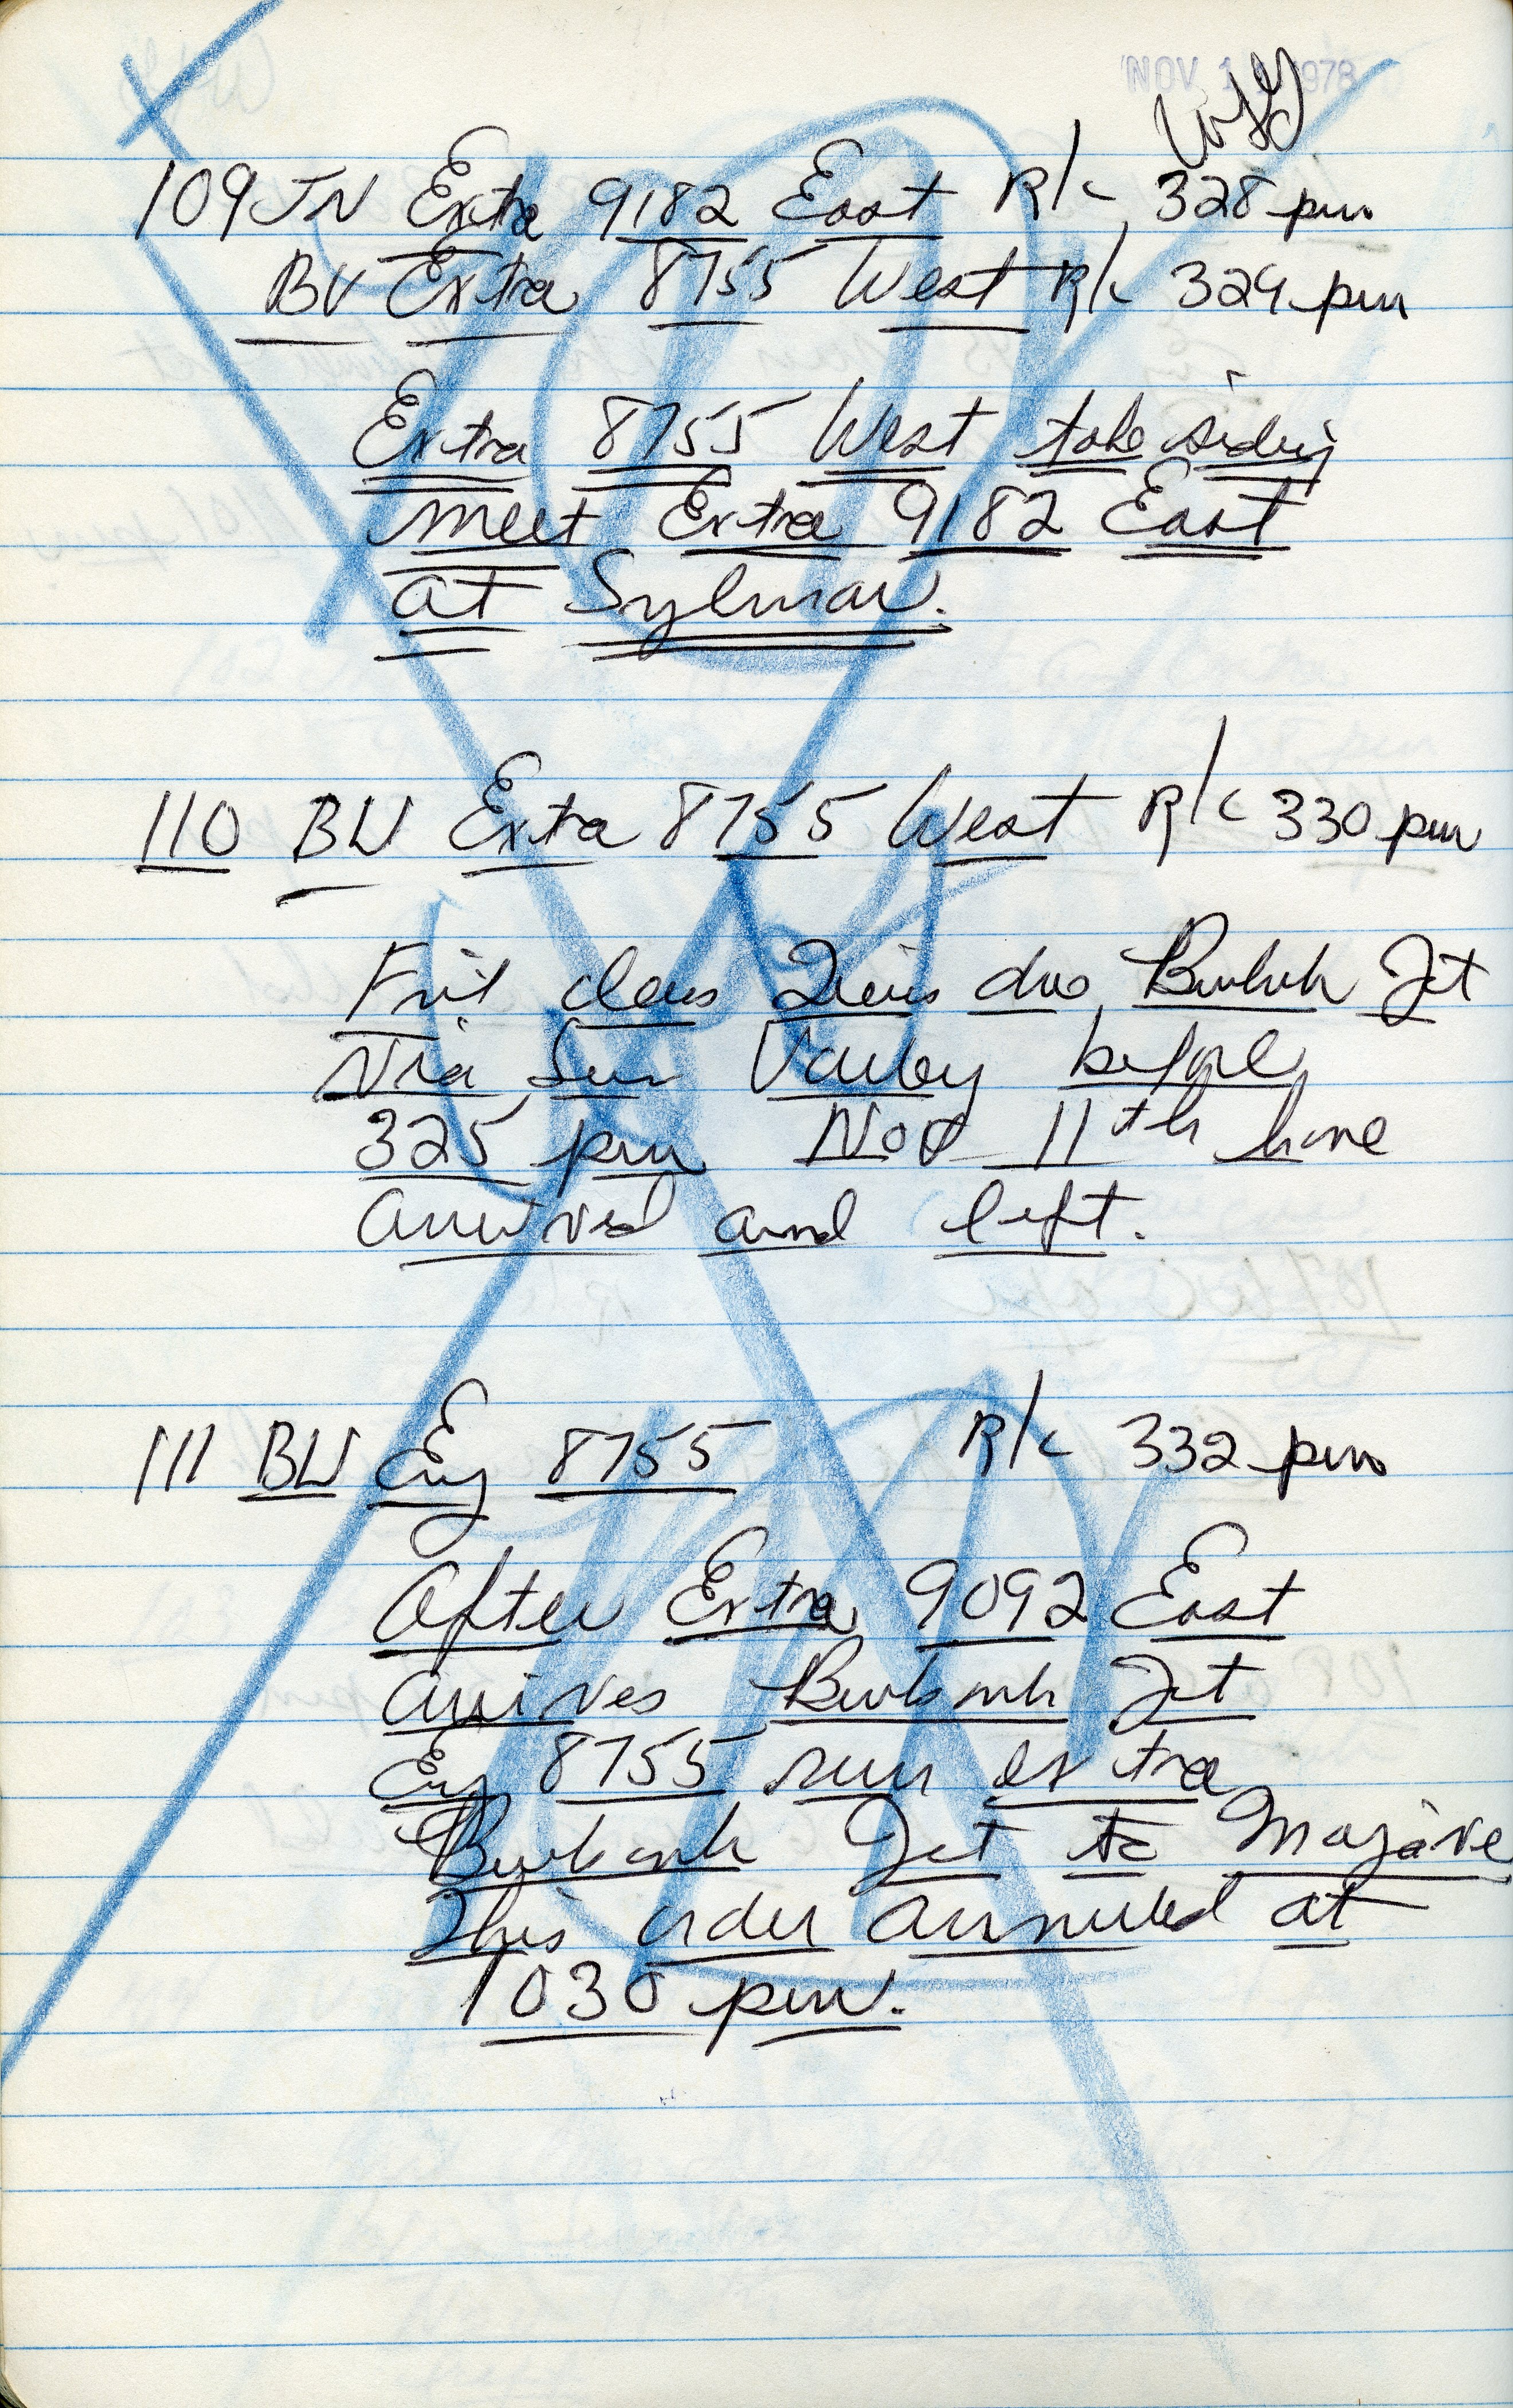 NOV 1 1978
WSG
109 JN Extra 9182 East R/c 328 pm
BU Extra 8755 West R/c 329 pm
Extra 8755 West take siding
meet Extra 9182 East
at Sylmar.
110 BU Extra 8755 West R/c 330 pm
First class Trains due Burbank Jct
Via Sun Valley before
325 pm Nov 11th have
arrived and left.
111 BU Eng 8755 R/c 332 pm
After Extra 9092 East
arrives Burbank Jct
Eng 8755 run extra
Burbank Jct to Mojave
This order annulled at
1030 pm.